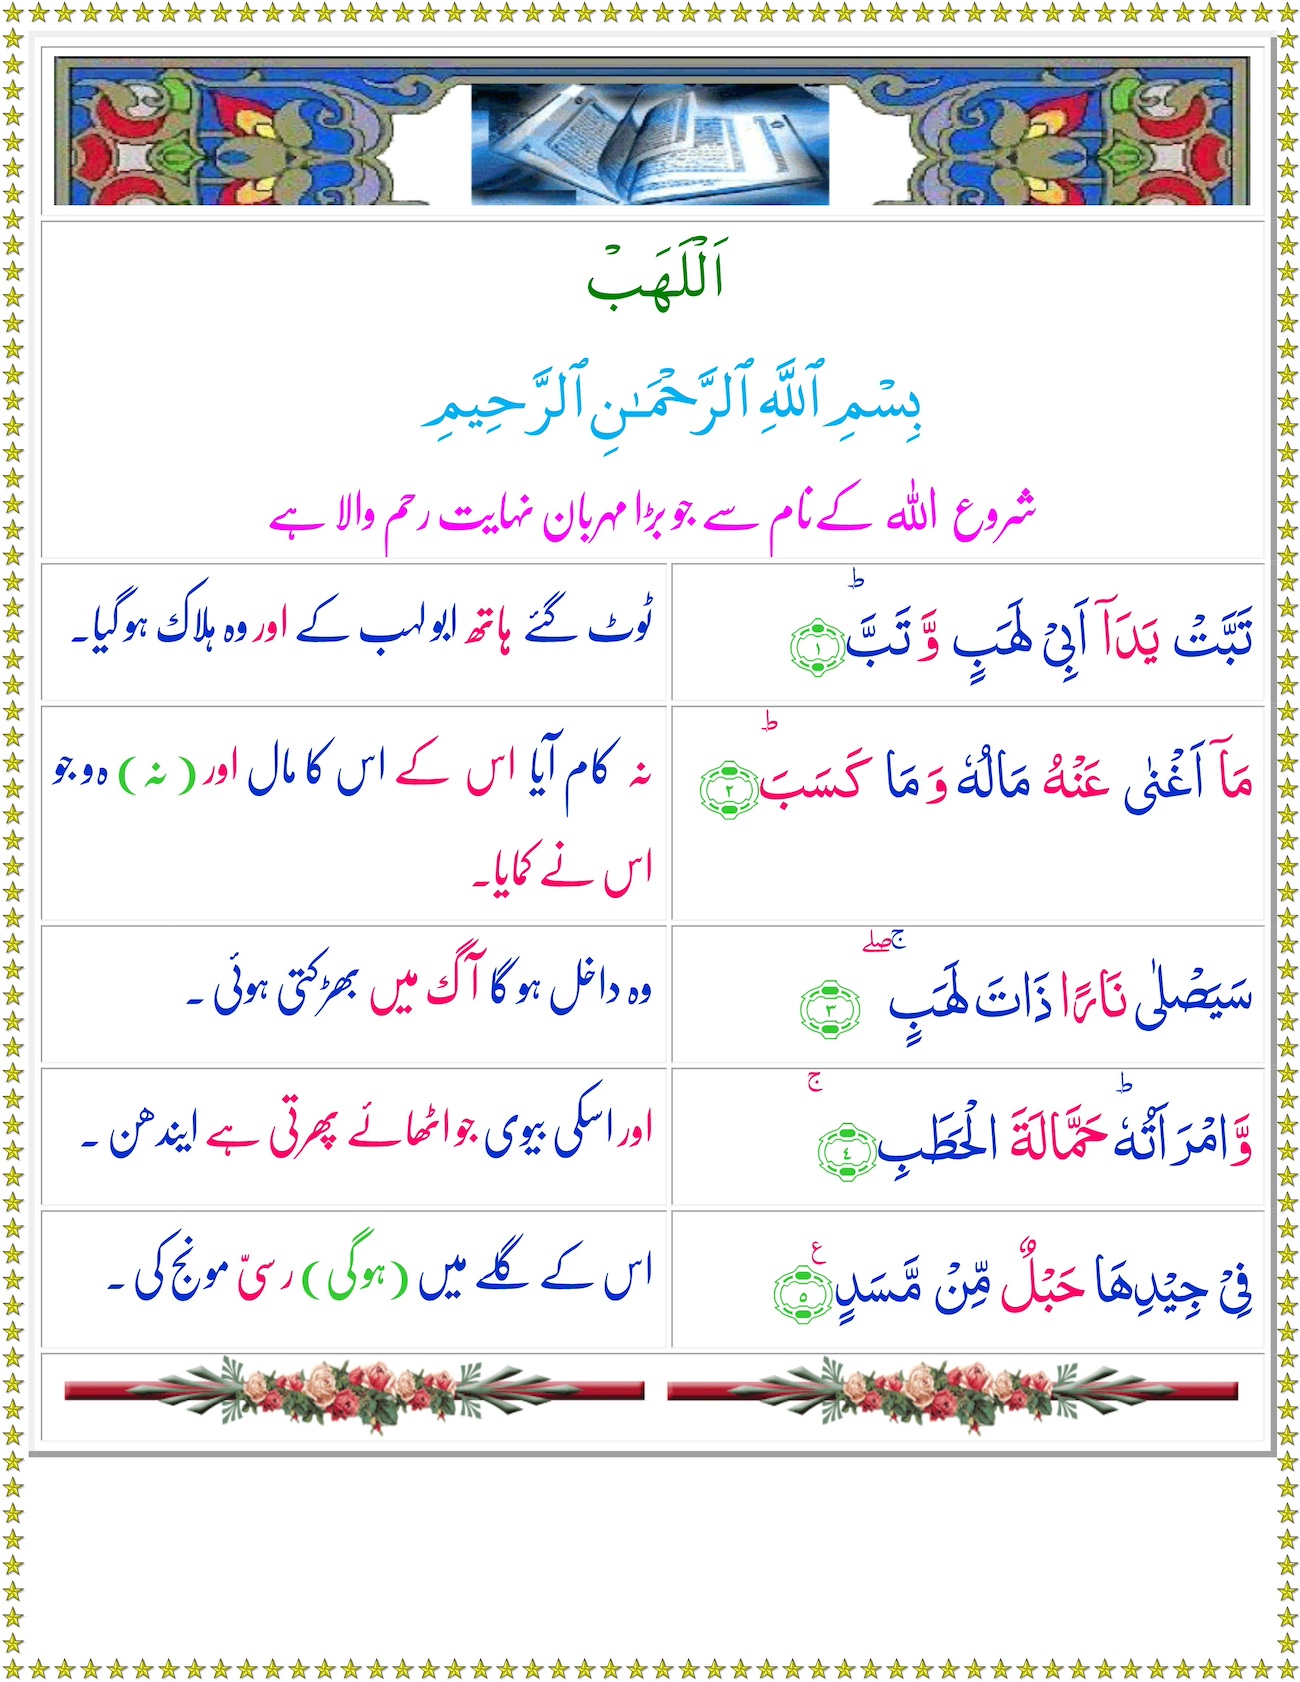 اَلْلَهَبْ
بِسْمِ ٱللَّهِ ٱلرَّحْمَـٰنِ ٱلرَّحِيمِ
شروع اللہ کے نام سے جو بڑا مہربان نہایت رحم والا ہے
تَبَّتْ يَدَآ اَبِىْ لَهَبٍ وَّ تَبَّؕ‏ ﴿۱﴾
ٹوٹ گئے ہاتھ ابو لہب کے اور وہ ہلاک ہوگیا۔
مَاۤ اَغْنٰى عَنْهُ مَالُهٗ وَ مَا كَسَبَؕ‏ ﴿۲﴾
نہ کام آیا اس کے اس کا مال اور ( نہ ) ہ و جو
اس نے کمایا۔
سَيَصْلٰى نَارًا ذَاتَ لَهَبٍ ۖۚ‏ ﴿۳﴾
وہ داخل ہو گا آگ میں بھڑکتی ہوئی ۔
وَّ امْرَاَتُهٗ ؕ حَمَّالَةَ الْحَطَبِ‌ۚ‏ ﴿٤﴾
اور اسکی بیوی جو اٹھائے پھرتی ہے ایندھن ۔
فِىْ جِيْدِهَا حَبْلٌ مِّنْ مَّسَدٍ ع ﴿۵﴾
اس کے گلے میں (ہوگی) رسیّ مونج کی ۔